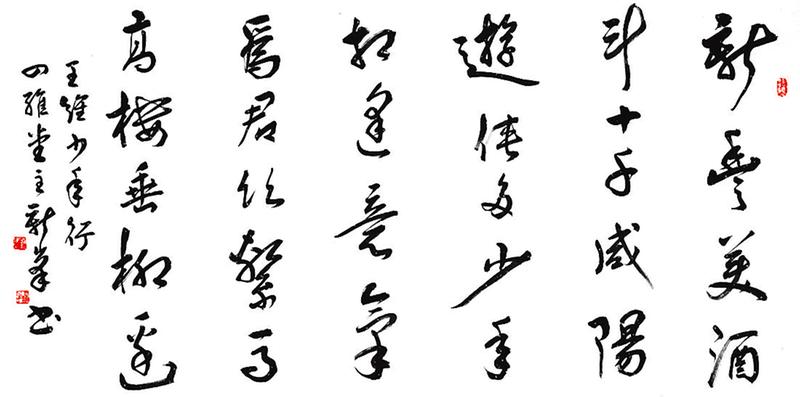 新豐美酒
斗十千咸陽
遊俠多少年
相逢意氣
爲君飲繫馬
高樓垂柳邊
王維少年行
四維堂主新峯书